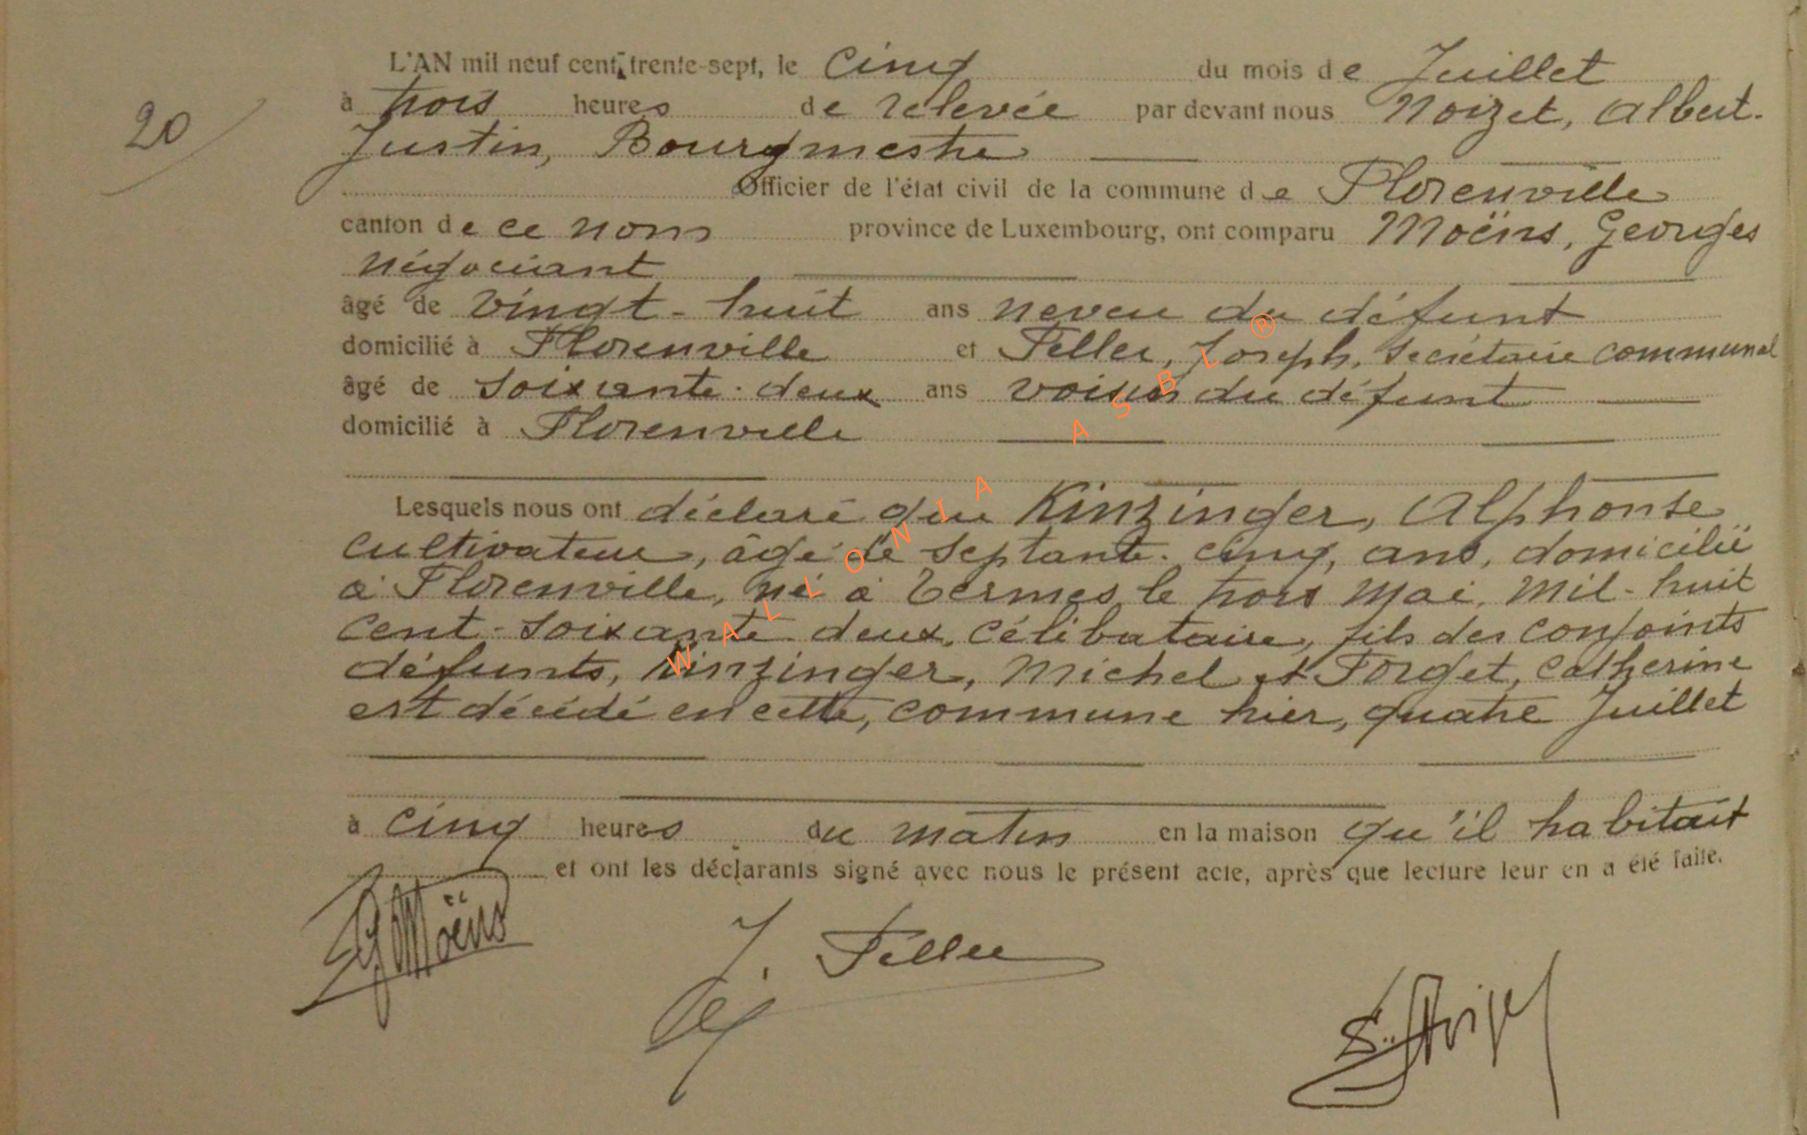 L'AN mil neuf cent trente-sept, le cinq du mois de Juillet
20
à trois heures de relevée par devant nous Noizet, Albert.
Justin, Bourgmestre
Officier de l'état civil de la commune de Florenville
canton de ce nom province de Luxembourg, ont comparu Moëns, Georges
négociant
âgé de vingt-huit ans neveu du défunt
domicilié à Florenville et Feller, Joseph, Secrétaire communal
âgé de soixante-deux ans voisin du défunt
domicilié à Florenville
Lesquels nous ont déclaré que Kinzinger, Alphonse
cultivateur, âgé de septante-cinq, ans, domicilié
à Florenville, né à Termes le trois Mai, mil-huit
cent-soixante deux, célibataire, fils des conjoints
défunts, Kinzinger, Michel et Forget, Catherine
est décédé en cette, commune hier, quatre Juillet
à cinq heures du matin en la maison qu'il habitait
et ont les déclarants signé avec nous le présent acte, après que lecture leur en a été faite.
G Moëns
J. Feller
WALLONIA ASBL ®